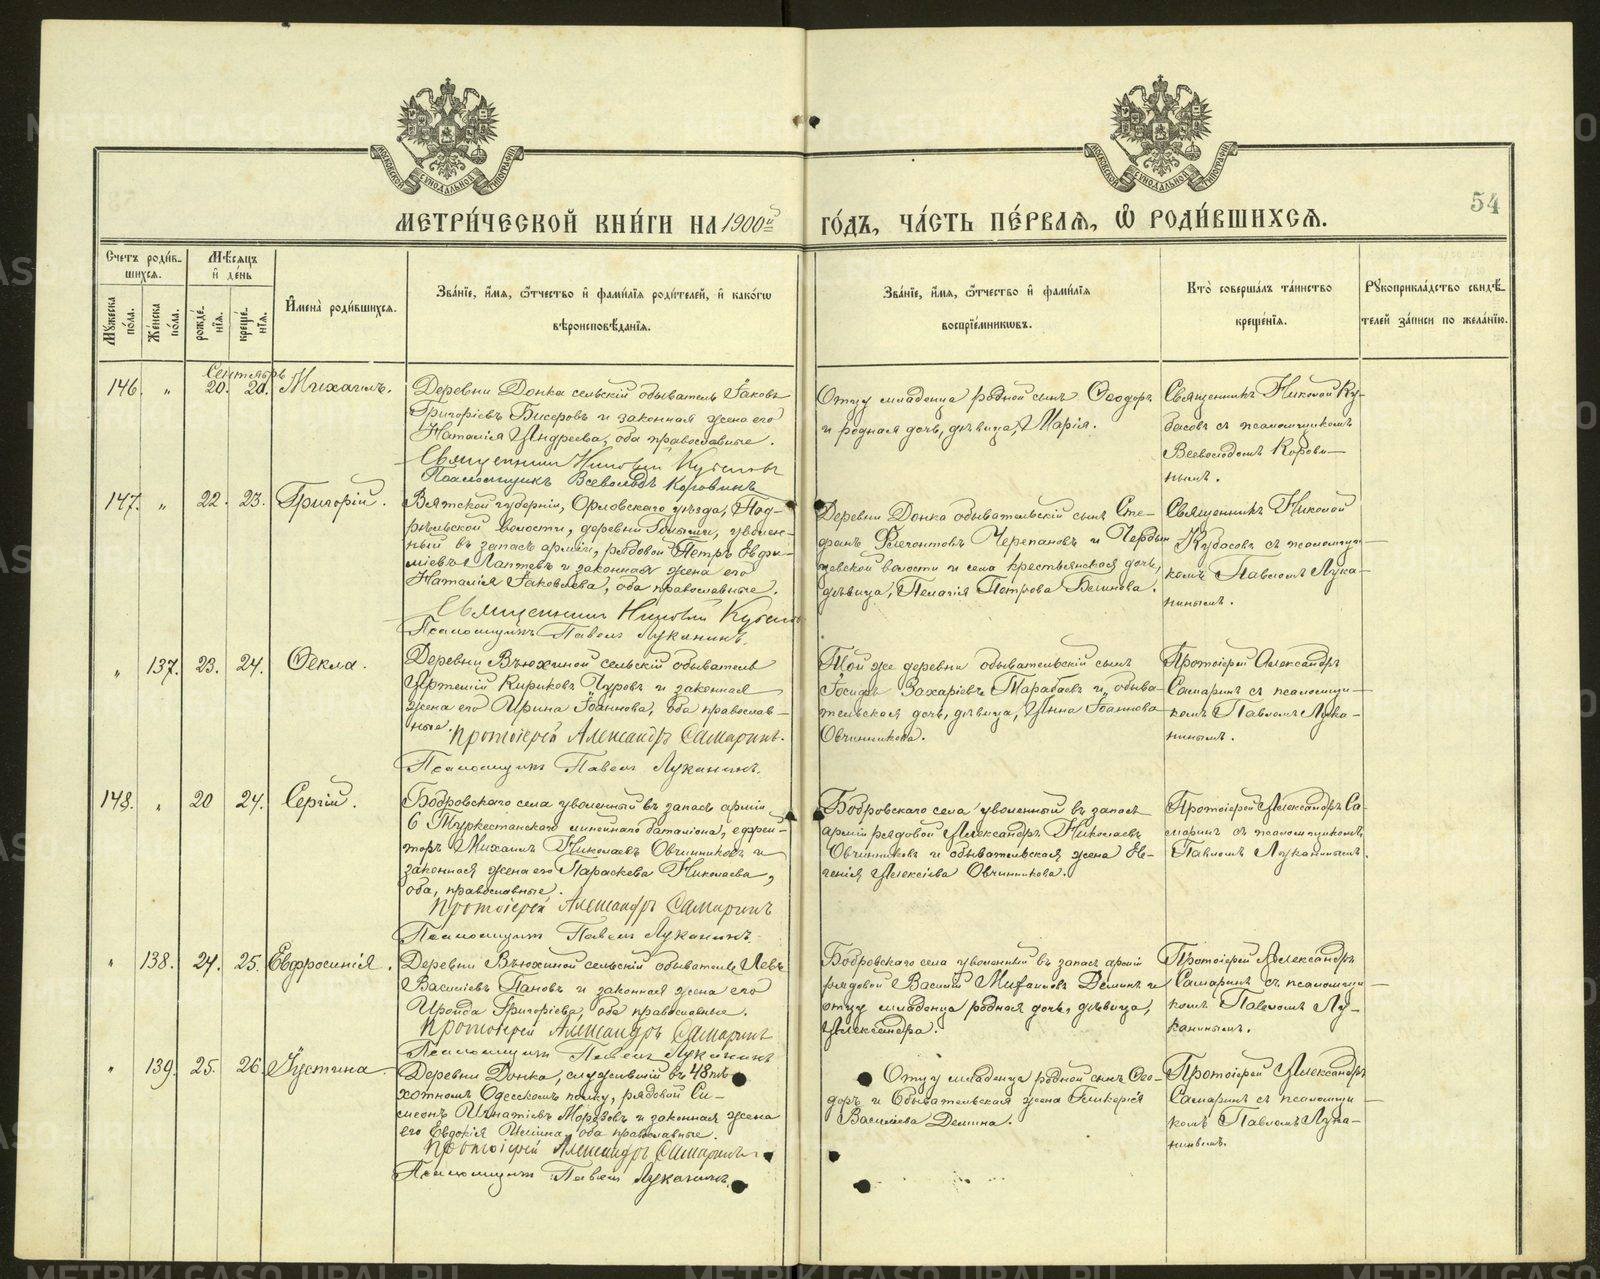 МОСКОВСКОЙ СѴНОДАЛЬНОЙ ТИПОГРАФІИ
МОСКОВСКОЙ СѴНОДАЛЬНОЙ ТИПОГРАФІИ
54
МЕТРИ́ЧЕСКОЙ КНИ́ГИ НА 1900й ГО́ДЪ, ЧА́СТЬ ПЕ́РВАЯ, Ѡ РОДИ́ВШИХСЯ.
Счетъ роди́вшихся.
Мꙋ́жеска по́ла.
Же́нска по́ла.
Мѣ́сяцъ и҆ де́нь
рожде́нїѧ.
креще́нїѧ.
И҆мена̀ роди́вшихсѧ.
Зва́нїе, и҆́мѧ, ѻ҆́тчество и҆ фами́лїѧ роди́телей, и҆ како́гѡ
вѣроисповѣ́данїѧ.
Зва́нїе, и҆́мѧ, ѻ҆́тчество и҆ фами́лїѧ
воспрїе́мникѡвъ.
Кто̀ соверша́лъ та́инство
креще́нїѧ.
Рꙋкоприкла́дство свидѣ́телей за́писи по жела́нїю.
Сентябрь
146. „ 20. 20. Михаилъ.
Деревни Донка сельскій обыватель Іаковъ
Григоріевъ Бисеровъ и законная жена его
Наталія Андреева, оба православные.
Священникъ Николай Кубасовъ
Псаломщикъ Всеволодъ Коровинъ
Отцу младенца родной сынъ Ѳеодоръ
и родная дочь, дѣвица, Марія.
Священникъ Николай Ку-
басовъ съ псаломщикомъ
Всеволодомъ Корови-
нымъ.
147. „ 22. 23. Григорій.
Вятской губерніи, Орловскаго уѣзда, Под-
рѣльской волости, деревни уволен-
ный въ запасъ арміи, рядовой Петръ Евфи-
міевъ Лаптевъ и законная жена его
Наталія Іаковлева, оба православные.
Священникъ Николай Кубасовъ
Псаломщикъ Павелъ Луканинъ.
Деревни Донка обывательскій сынъ Сте-
фанъ Черепановъ и
волости и села крестьянская дочь,
дѣвица, Пелагія Петрова
Священникъ Николай
Кубасовъ съ псаломщи-
комъ Павломъ Лука-
нинымъ.
„ 137. 23. 24. Ѳекла.
Деревни Вьюхиной сельскій обыватель
Артемій Кириковъ Чуровъ и законная
жена его Ирина Іоаннова, оба православ-
ные.
Протоіерей Александръ Самаринъ.
Псаломщикъ Павелъ Луканинъ.
Той же деревни обывательскій сынъ
Іосифъ Захаріевъ Тарабаевъ и обыва-
тельская дочь, дѣвица, Анна Іоаннова
Овчинникова.
Протоіерей Александръ
Самаринъ съ псаломщи-
комъ Павломъ Лука-
нинымъ.
148. „ 20 24. Сергій.
Бобровскаго села уволенный въ запасъ арміи
6 Туркестанскаго линейнаго баталіона, ефрей-
торъ Михаилъ Николаевъ Овчинниковъ и
законная жена его Параскева Николаева,
оба, православные.
Протоіерей Александръ Самаринъ
Псаломщикъ Павелъ Луканинъ.
Бобровскаго села уволенный въ запасъ
арміи рядовой Александръ Николаевъ
Овчинниковъ и обывательская жена Ев-
генія Алексіева Овчинникова.
Протоіерей Александръ Са-
маринъ съ псаломщикомъ
Павломъ Луканинымъ.
„ 138. 24. 25. Евфросинія.
Деревни Вьюхиной сельскій обыватель Левъ
Василіевъ Пановъ и законная жена его
Ираида Григоріева, оба православные.
Протоіерей Александръ Самаринъ
Псаломщикъ Павелъ Луканинъ
Бобровскаго села уволенный въ запасъ арміи
рядовой Василій Михаиловъ Деминъ и
отцу младенца родная дочь, дѣвица,
Александра.
Протоіерей Александръ
Самаринъ съ псаломщи-
комъ Павломъ Лу-
канинымъ.
„ 139. 25. 26. Іустина
Деревни Донка, служившій въ 48 пѣ-
хотномъ Одесскомъ полку, рядовой Си-
меонъ Игнатіевъ Морозовъ и законная жена
его Евдокія Илiина, оба православные.
Протоіерей Александръ Самаринъ
Псаломщикъ Павелъ Луканинъ.
Отцу младенца родной сынъ Ѳео-
доръ и обывательская жена Гликерія
Василіева Демина.
Протоіерей Александръ
Самаринъ съ псаломщи-
комъ Павломъ Лука-
нинымъ.
METRIKI.GASO-URAL.RU